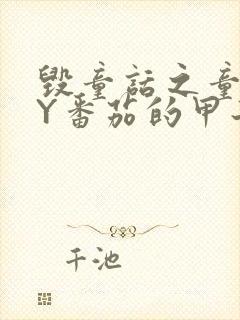 毁童话之童
Y番茄的甲
千池